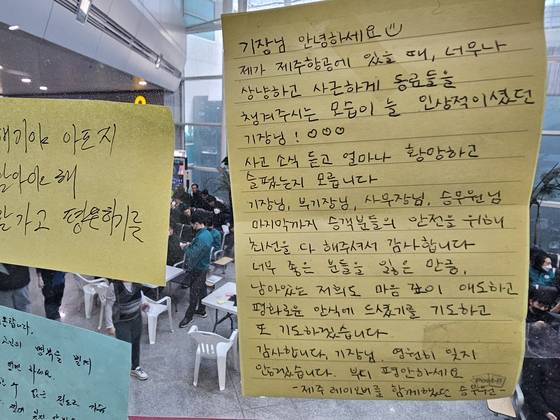 기장님 안녕하세요
제가 제주항공에 있을 때, 너무나
상냥하고 사근하게 동료들을
챙겨주시는 모습이 늘 인상적이셨던
기장님! ♡♡♡
사고 소식 듣고 얼마나 황망하고
슬펐는지 모릅니다
기장님, 부기장님, 사무장님, 승무원님
마지막까지 승객분들의 안전을 위해
최선을 다 해주셔서 감사합니다
너무 좋은 분들을 잃은 만큼,
남아있는 저희도 마음 깊이 애도하고
평화로운 안식에 드셨기를 기도하고
또 기도하겠습니다.
감사합니다, 기장님. 영원히 잊지
않겠습니다. 부디 평안하세요
- 제주 레이오버를 함께했던 승무원 -
Post-it
아프지
말아야 해
가고 평온하기를
명복을 빌며